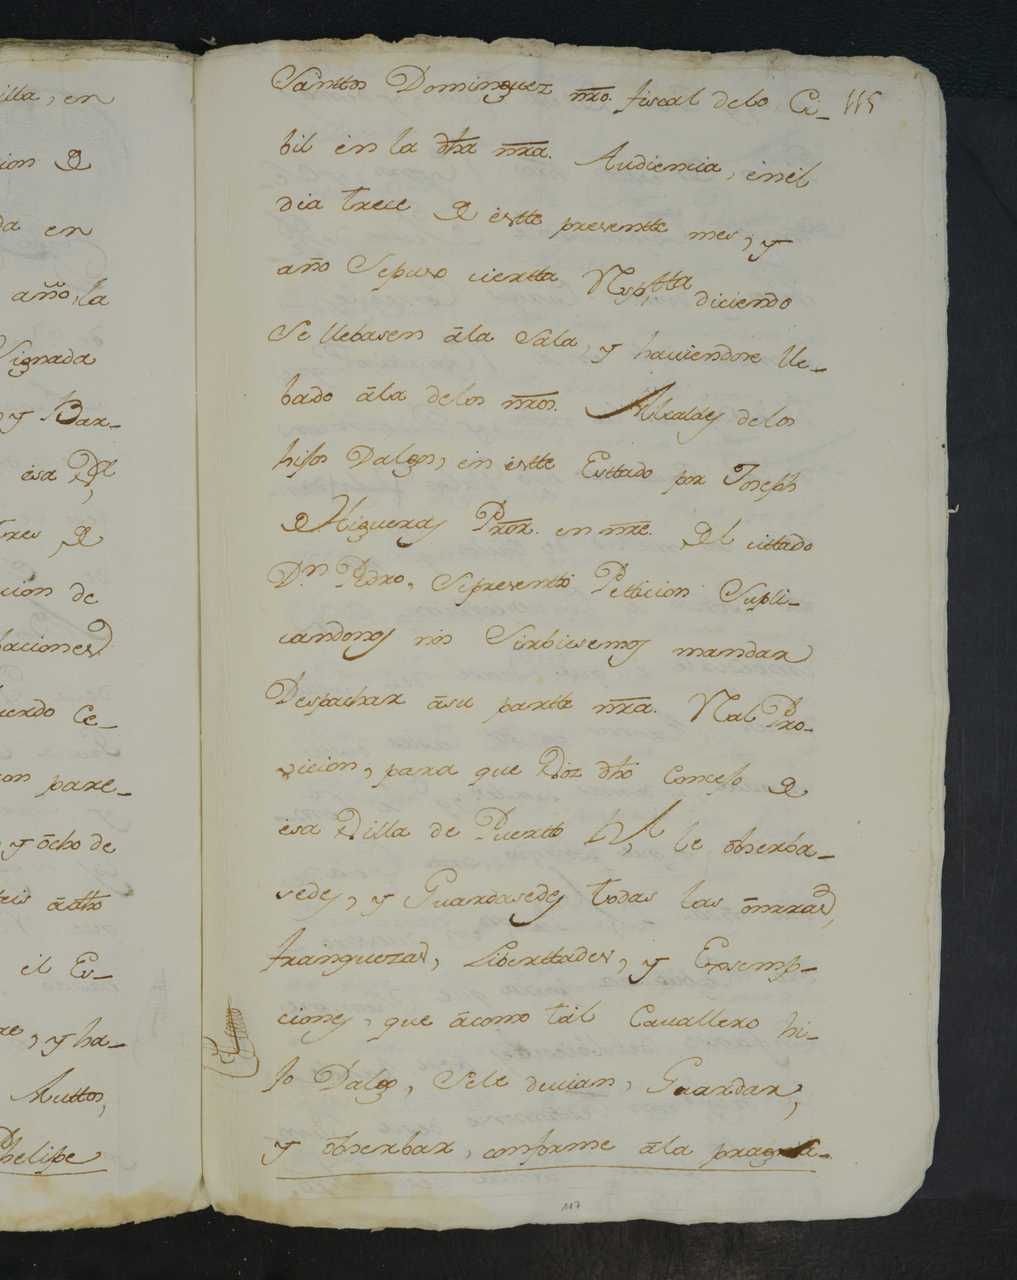 illa, en
cion de
da en
año, la
Signada
y Bar-
esa Rl
tres de
cion de
baciones
uerdo Ce-
on pare-
y ocho de
seis ãdho
el Es-
re, y ha-
Auttos,
Phelipe
Santtos Dominguez nr̃o. fiscal delo Ci- 115
bil en la dha nr̃a. Audiencia, en el
dia trece de estte presentte mes, y
año Sepuso ciertta Rsp.tta diciendo
Se llebasen ãla Sala, y haviendose lle-
bado ãla delos nr̃os. Alcaldes delos
hijos Dalgo, en estte Esttado por Joseph
de Higueras Pror. en nr̃e. del cittado
D.n Pedro, Sepresentto Petticion Supli-
candonos nos Sirbiesemos mandar
Despachar ãsu partte nr̃a. Real Pro-
vicion, para que Voz dho Consejo de
esa Villa de Puertto Rl, le obserba-
sedes, y Guardasedes todas las onrras,
franquezas, Liberttades, y Exsemp-
ciones, que ãcomo tal Cavallero hi-
jo Dalgo, Sele devian, Guardar,
y obserbar, conforme ãla pragma-
117